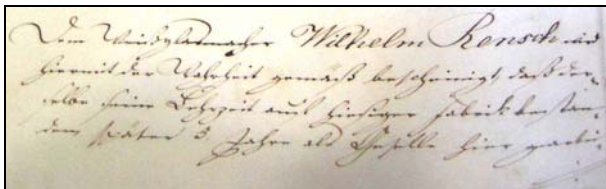 Dem Weißglasmacher Wilhelm Rensch wird
hiermit der Wahrheit gemäß bescheinigt, daß der-
selbe seine Lehrzeit auf hiesiger Fabrik bestan-
den später 3 Jahre als Geselle hier gearbei-